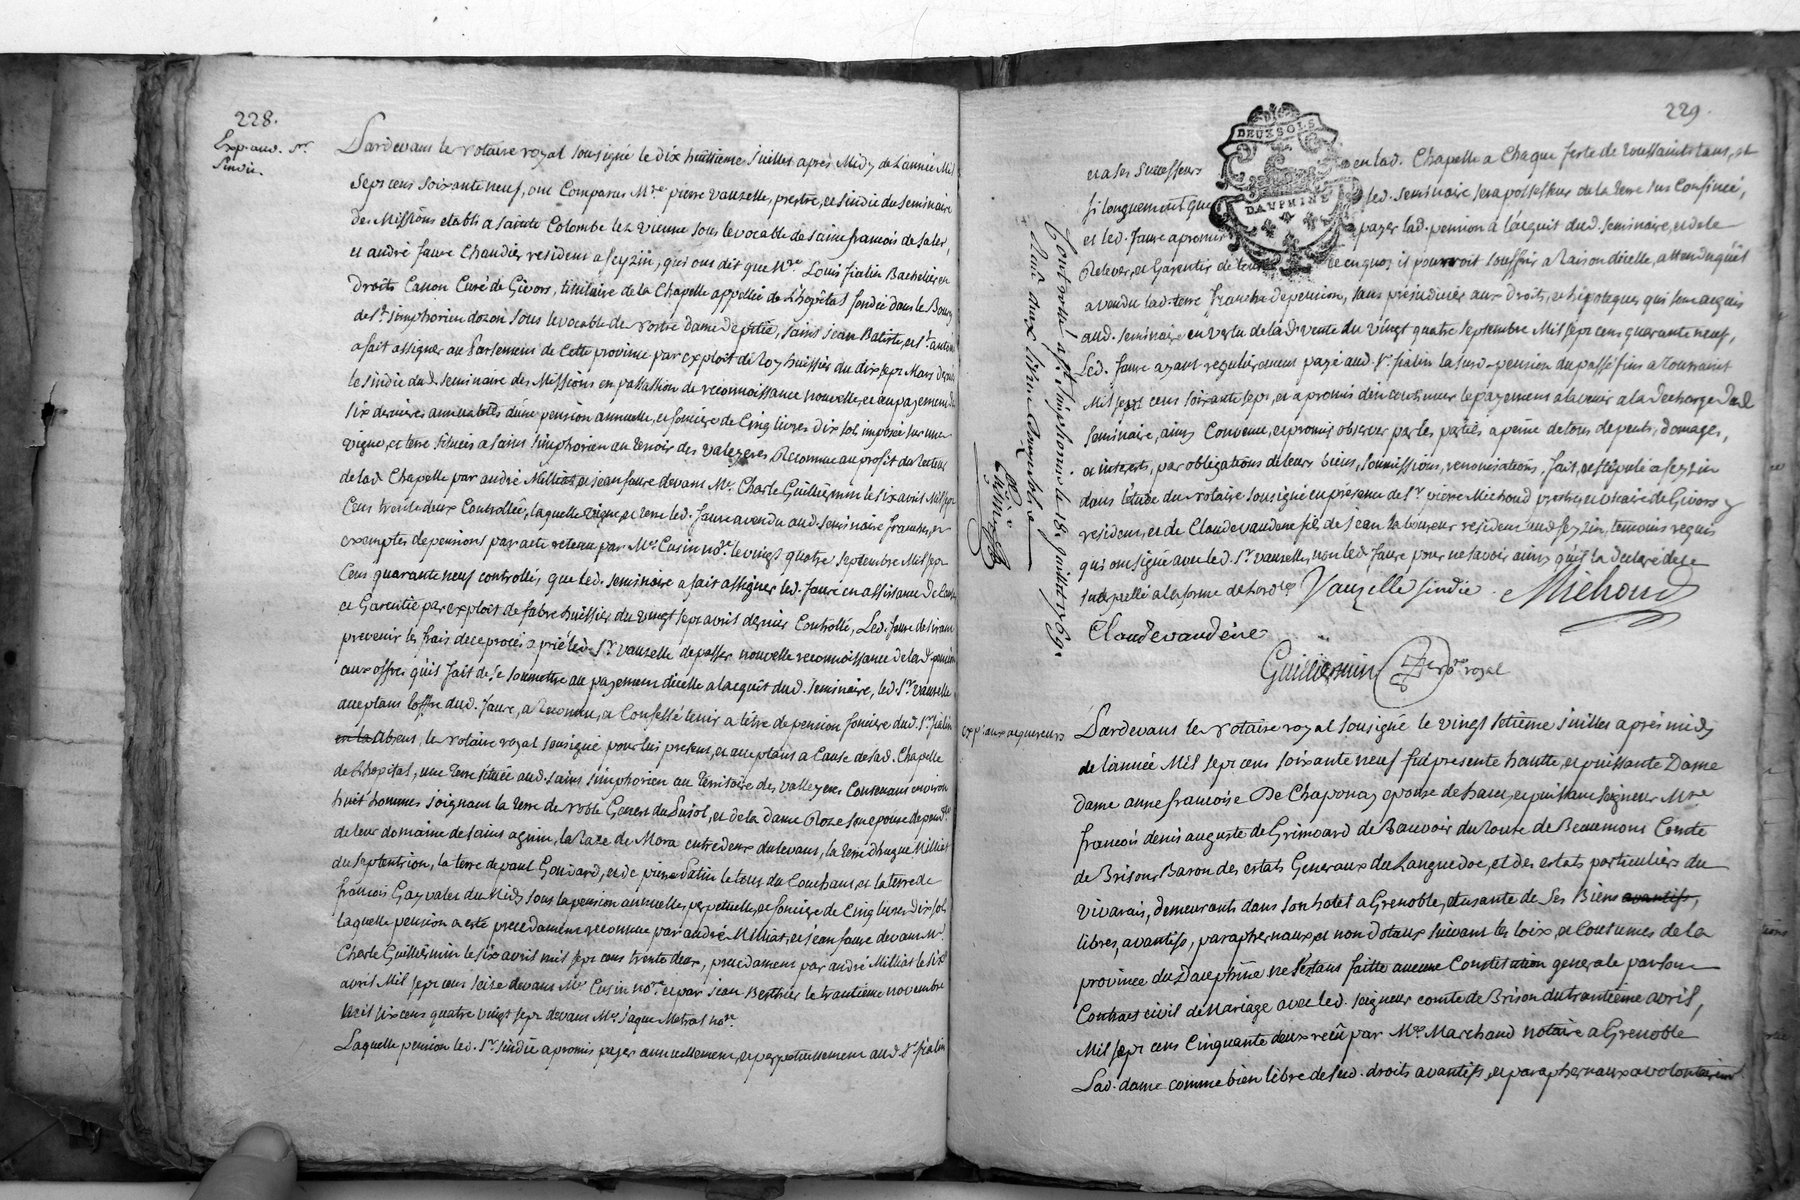 228.
Exp. aud. Sr.
Sindic.
Pardevant le notaire royal sousigné le dix huitieme juillet apres midy de l'année Mil
Sept cens soixante neuf, ont comparus Mre. pierre vauzelle, prestre, et sindic du seminaire
des Missions etabli a sainte Colombe lez vienne sous le vocable de saint francois de sales,
et andré faure Chandier resident a seyzin, qui ont dit que Mre. Louis fialin Bachelier en
droits Canon Curé de Givors, titulaire de la Chapelle appellée de L'hôpital fondée dans le Bourg
de St. simphorien dozon sous le vocable de nostre dame de pitié, saint jean Batiste, et St. antoine
a fait assigner au Parlement de cette province par exploit de roy huissier du dix sept Mars dernier
le sindic dud. seminaire des Missions en passation de reconnoissance nouvelle, et au payement de
six dernieres annualités d'une pension annuelle, et fonciere de Cinq livres dix sols imposée sur une
vigne, et terre situées a saint simphorien au terroir des valeyeres Reconnue au profit du Recteur
de lad. Chapelle par andré Milliat, et jean faure devant Me. Charle Guilliermin le six avril Mil sept
Cens trente deux Controllée, laquelle vigne, et terre led. faure a vendu aud. seminaire franche, et
exemptes de pensions par acte reteau par Me. Cusin nore. le vingt quatre septembre Mil sept
Cens quarante neuf controllé, que led. seminaire a fait assigner led. faure en assistance de Cause
et Garentie par exploit de fabre huissier du vingt sept avril dernier Controllé, Led. faure desirant
prevenir les frais de ce procés a prié led. Sr. vauzelle de passer nouvelle reconnoissance de lad. pension
aux offres qu'il fait de se soumettre au payement d'icelle a l'acquit dud. seminaire, led. Sr. vauzelle
acceptant l'offre dud. faure, a Reconnu, et Confessé tenir a titre de pension fonciere dud. Sr. fialin
en la absent, le notaire royal sousigné pour lui present, et acceptant a Cause de sad. Chapelle
de L'hopital, une terre située aud. saint simphorien au territoire des valleyeres Contenant environ
huit hommes joignant la terre de noble Genest du Puisol, et de la dame Roze son epouse dependte.
de leur domaine de saint aguin, la Raze de Mora entredeux du levant, la terre d'hugue Milliat
du septentrion, la terre de paul Gouvard, et de pierre Patin le tout du Couchant, et la terre de
francois Gay valet du Midy sous la pension annuelle, perpetuelle, et fonciere de Cinq livres dix sols
laquelle pension a esté precedament reconnue par andré Milliat, et jean faure devant Me.
Charle Guilliermin le six avril mil sept cens trente deux, precedament par andré Milliat le six
avril Mil sept cens seize devant Me. Cusin nore. et par jean Berthier le trantieme novembre
Mil six cens quatre vingt sept devant Me. jaque Metral nore.
Laquelle pension led. Sr. sindic a promis payer annuellement, et perpetuellement aud. Sr. fialin
229.
DEUX SOLS
DAUPHINÉ
et a ses successeurs en lad. Chapelle a Chaque feste de Toussaints tant, et
si longuement que led. seminaire sera possesseur de la terre sus Confinée,
et led. faure a promis payer lad. pension à l'acquit dud. seminaire, et de le
Relever, et Garentir de tout ce en quoy il pourroit souffrir a Raison d'icelle, attendu qu'il
a vendu lad. terre franche de pension, sans prejudicier aux droits, et hipoteques qui sont acquis
aud. seminaire en vertu de lad. vente du vingt quatre septembre Mil sept cens quarante neuf,
Led. faure ayant regulierement payé aud. Sr. fialin la susd. pension du passé fini a Toussaint
Mil sept cens soixante sept, et a promis d'en continuer le payement a la decharge dud.
seminaire, ainsy Convenu, et promis observer par les parties a peine de tous depents, domages,
et interests, par obligations de leurs biens, soumissions, renonciations, fait, et stipulé a seyzin
dans l'étude du notaire sousigné en présence de Sr. pierre Michoud prestre, et vicaire de Givors y
resident, et de Claude vaudene fils de jean laboureur resident aud. seyzin, temoins requis
qui ont signé avec led. Sr. vauzelle, non led. faure pour ne savoir ainsi qu'il l'a declaré de ce
interpellé a la forme de l'ordce. Vauzelle sindic. Michoud
Claude vaudene
Guilliermin nore. royal
Controllé a St. simphorien le 18e. juillet 1769.
Reçû onze livres
exp. aux acquereurs
Pardevant le notaire royal sousigné le vingt setième juillet apres midy
de l'année Mil sept cens soixante neuf fut presente hautte, et puissante Dame
dame anne francoise De Chaponay epouse de haut, et puissant seigneur Mre.
francois denis auguste de Grimoard de Bauvoir du Roure de Beaumont Comte
de Brison, Baron des estats Generaux du Languedoc, et des estats particuliers du
vivarais, demeurante dans son hotel a Grenoble, et usante de ses Biens avantifs,
libres, avantifs, paraphernaux, et non dotaux suivant les loix, et Coutumes de la
province du Dauphine ne s'estant faitte aucune Constitution generale par son
Contract civil de Mariage avec led. seigneur comte de Brison du trantieme avril,
Mil sept cens Cinquante deux reçû par Me. Marchand notaire a Grenoble
Lad. dame comme bien libre de sesd. droits avantifs, et paraphernaux a volontairemt